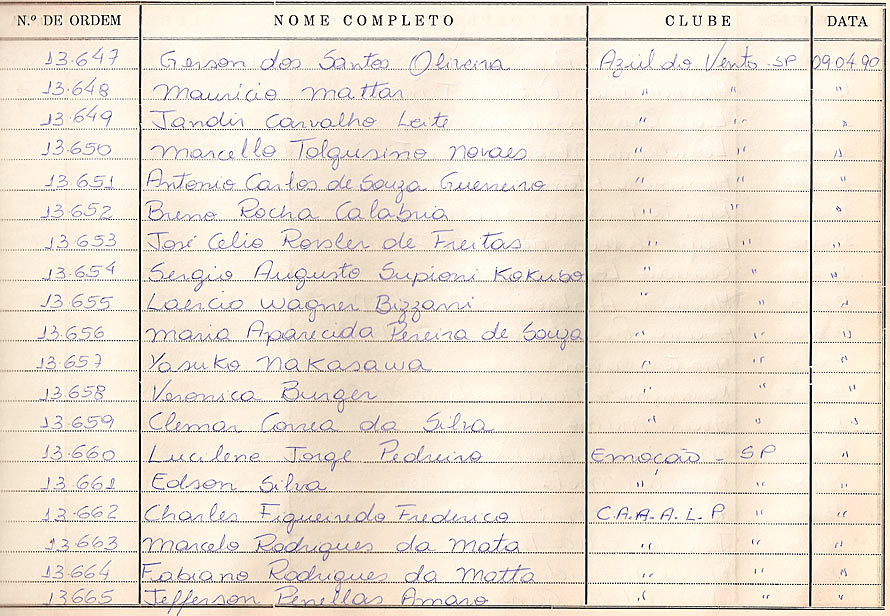 N.º DE ORDEM NOME COMPLETO CLUBE DATA
13.647 Gerson dos Santos Oliveira Azul do Vento - SP 09.04.90
13.648 Mauricio Mattar " " "
13.649 Jandir Carvalho Leite " " "
13.650 Marcello Tolgusino Novaes " " "
13.651 Antonio Carlos de Souza Guerreiro " " "
13.652 Breno Rocha Calabria " " "
13.653 José Celio Rossler de Freitas " " "
13.654 Sergio Augusto Supioni Kokubo " " "
13.655 Laercio Wagner Bizzarri " " "
13.656 Maria Aparecida Pereira de Souza " " "
13.657 Yasuko Nakasawa " " "
13.658 Veronica Burger " " "
13.659 Clemar Correa da Silva " " "
13.660 Lucileno Jorge Pedreiro Emocão - SP "
13.661 Edson Silva " " "
13.662 Charles Figueiredo Frederico C.A.A.A.L.P " "
13.663 Marcelo Rodrigues da Mata " " "
13.664 Fabiano Rodrigues da Matta " " "
13665 Jefferson Penellas Amaro " " "